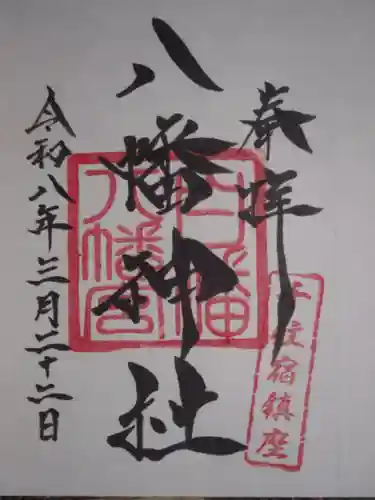 奉拝
八幡神社
令和八年三月二十二日
八幡宮
宿鎮座